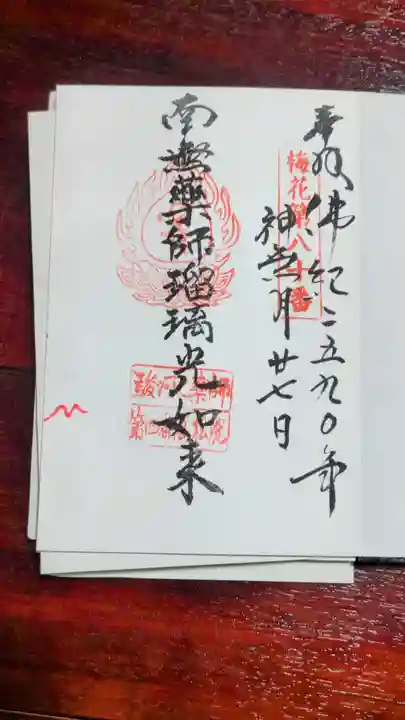 奉拝 佛紀二五九〇年
神無月廿七日
梅花第八十番
南無藥師瑠璃光如来
駿河一国薬師